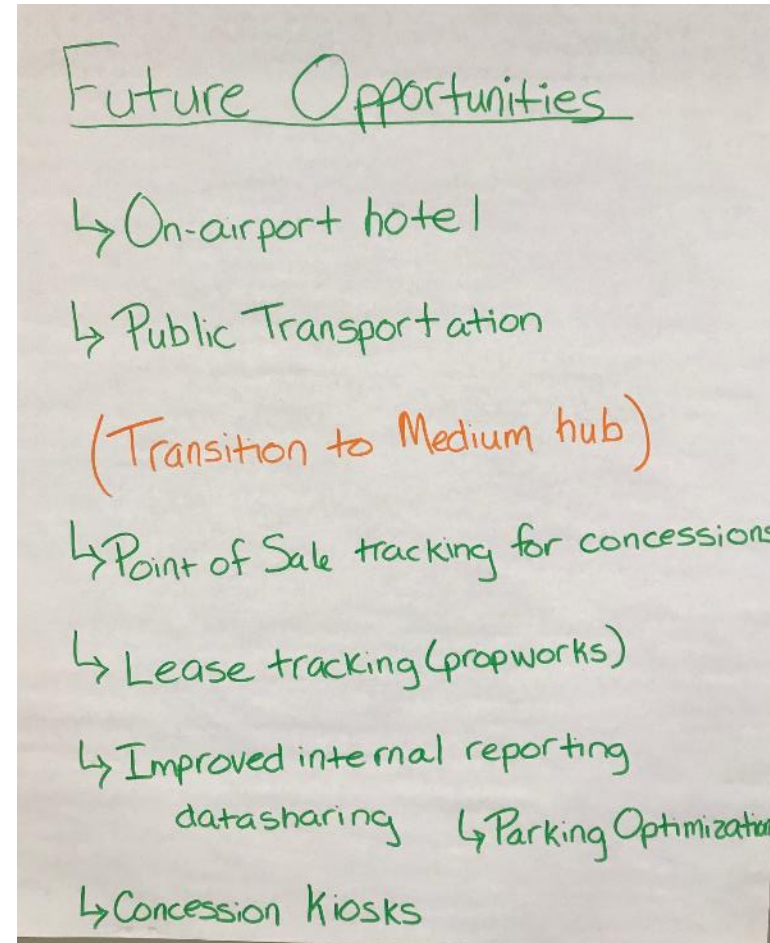 Future Opportunities
↳ On-airport hotel
↳ Public Transportation
(Transition to Medium hub)
↳ Point of Sale tracking for concessions
↳ Lease tracking (propworks)
↳ Improved internal reporting
datasharing ↳ Parking Optimization
↳ Concession Kiosks